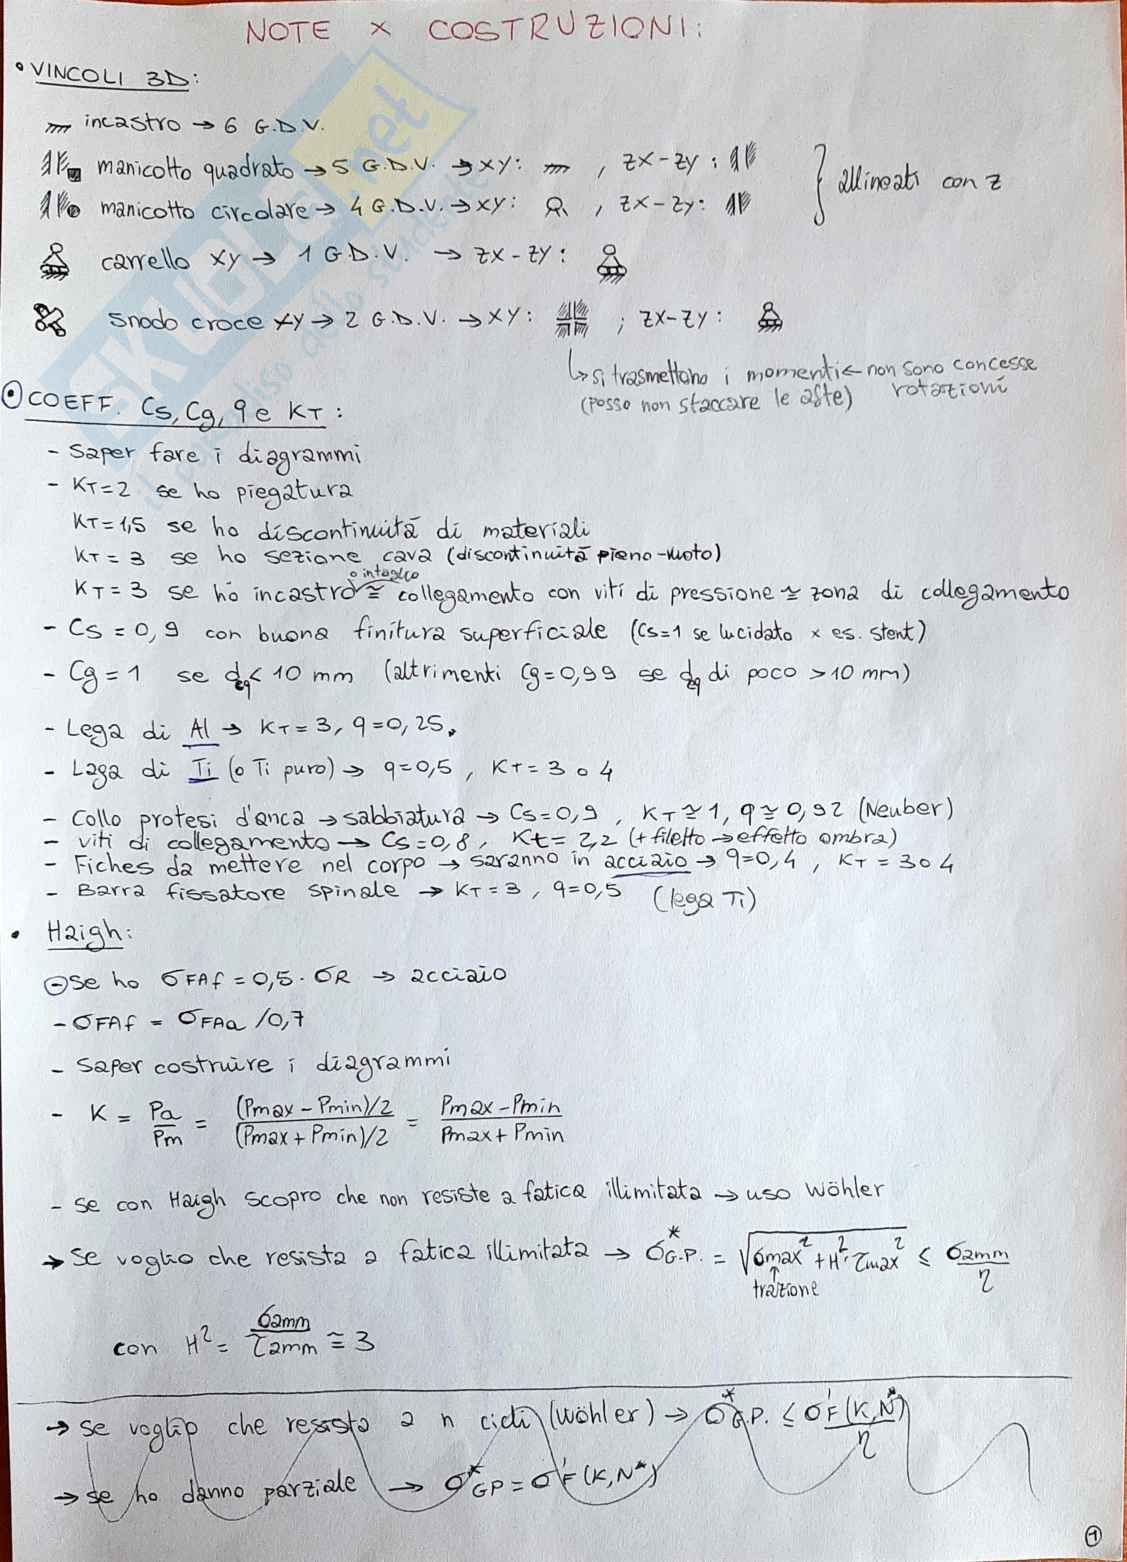 NOTE x COSTRUZIONI:
• VINCOLI 3D:
incastro → 6 G.D.V.
manicotto quadrato → 5 G.D.V. → XY: , ZX-ZY:
manicotto circolare → 4 G.D.V. → XY: , ZX-ZY:
} allineati con Z
carrello XY → 1 G.D.V. → ZX-ZY:
snodo croce XY → 2 G.D.V. → XY: ; ZX-ZY:
↳ si trasmettono i momenti ← non sono concesse rotazioni
(posso non staccare le aste)
COEFF. Cs, Cg, q e KT:
- Saper fare i diagrammi
- KT=2 se ho piegatura
KT=1,5 se ho discontinuità di materiali
KT=3 se ho sezione cava (discontinuità pieno-vuoto)
o intaglio
KT=3 se ho incastro ≅ collegamento con viti di pressione ≅ zona di collegamento
- Cs=0,9 con buona finitura superficiale (Cs=1 se lucidato x es. stent)
- Cg=1 se deq<10 mm (altrimenti Cg=0,99 se deq di poco >10 mm)
- Lega di Al → KT=3, q=0,25.
- Lega di Ti (o Ti puro) → q=0,5, KT=3 o 4
- Collo protesi d'anca → sabbiatura → Cs=0,9, KT≅1, q≅0,92 (Neuber)
- viti di collegamento → Cs=0,8, Kt=2,2 (+ filetto → effetto ombra)
- Fiches da mettere nel corpo → saranno in acciaio → q=0,4, KT=3 o 4
- Barra fissatore spinale → KT=3, q=0,5 (lega Ti)
• Haigh:
- Se ho σFAf = 0,5 · σR → acciaio
- σFAf = σFAa /0,7
- Saper costruire i diagrammi
- K = Pa/Pm = (Pmax-Pmin)/2 / (Pmax+Pmin)/2 = Pmax-Pmin / Pmax+Pmin
- Se con Haigh scopro che non resiste a fatica illimitata → uso Wöhler
→ Se voglio che resista a fatica illimitata → σ*G.P. = √(σmax² + H²·τmax²) ≤ σamm/η
↑ trazione
con H² = σamm/τamm ≅ 3
→ se voglio che resista a n cicli (Wöhler) → σ*G.P. ≤ σ'F(K,N*)/η
→ se ho danno parziale → σ*GP = σ'F(K,N*)
1
SKUOLA.net
il paradiso dello studente